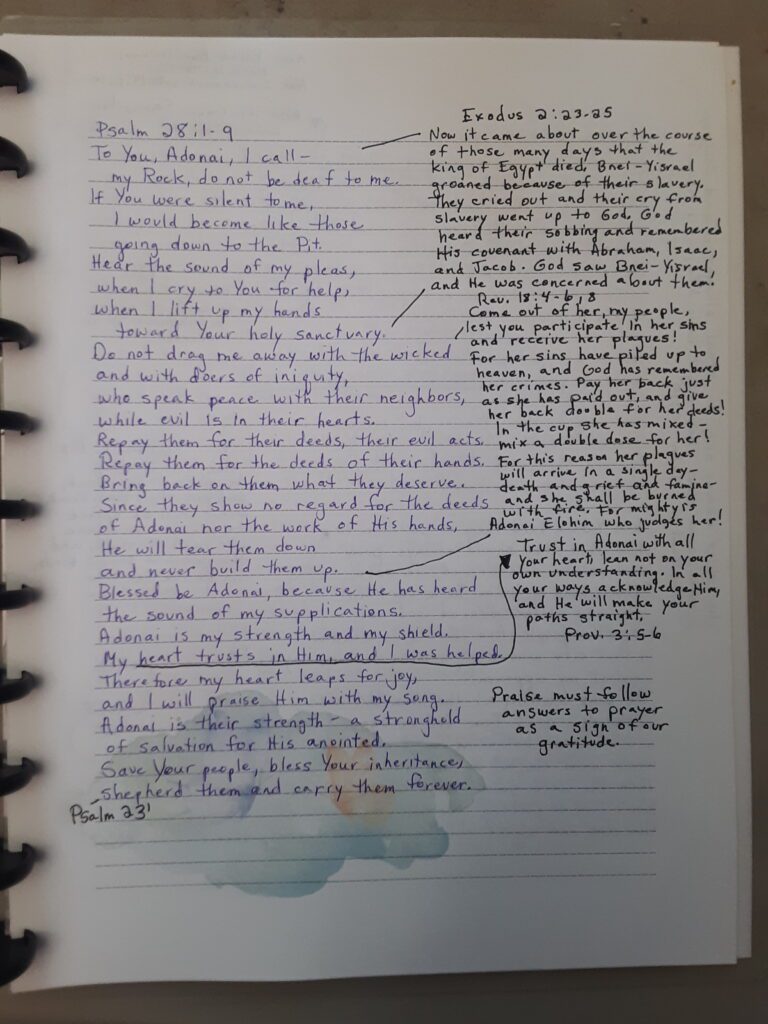 Psalm 28:1-9
To You, Adonai, I call-
my Rock, do not be deaf to me.
If You were silent to me,
I would become like those
going down to the Pit.
Hear the sound of my pleas,
when I cry to You for help,
when I lift up my hands
toward Your holy sanctuary.
Do not drag me away with the wicked
and with doers of iniquity,
who speak peace with their neighbors,
while evil is in their hearts.
Repay them for their deeds, their evil acts.
Repay them for the deeds of their hands.
Bring back on them what they deserve.
Since they show no regard for the deeds
of Adonai nor the work of His hands,
He will tear them down
and never build them up.
Blessed be Adonai, because He has heard
the sound of my supplications.
Adonai is my strength and my shield.
My heart trusts in Him, and I was helped.
Therefore my heart leaps for joy,
and I will praise Him with my song.
Adonai is their strength - a stronghold
of salvation for His anointed.
Save Your people, bless Your inheritance,
shepherd them and carry them forever.
Psalm 23'
Exodus 2:23-25
Now it came about over the course
of those many days that the
king of Egypt died. Bnei-Yisrael
groaned because of their slavery.
They cried out and their cry from
slavery went up to God, God
heard their sobbing and remembered
His covenant with Abraham, Isaac,
and Jacob. God saw Bnei-Yisrael,
and He was concerned about them.
Rev. 18:4-6, 8
Come out of her, my people,
lest you participate in her sins
and receive her plagues!
For her sins have piled up to
heaven, and God has remembered
her crimes. Pay her back just
as she has paid out, and give
her back double for her deeds!
In the cup she has mixed-
mix a double dose for her!
For this reason her plagues
will arrive in a single day-
death and grief and famine-
and she shall be burned
with fire. For mighty is
Adonai Elohim who judges her!
Trust in Adonai with all
your heart, lean not on your
own understanding. In all
your ways acknowledge Him,
and He will make your
paths straight.
Prov. 3:5-6
Praise must follow
answers to prayer
as a sign of our
gratitude.